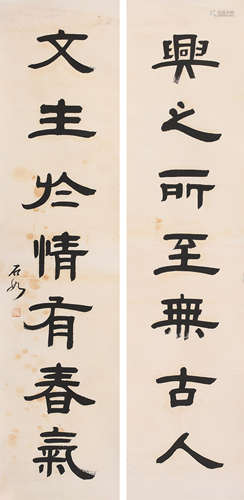 興之所至無古人
文生於情有春氣
石如